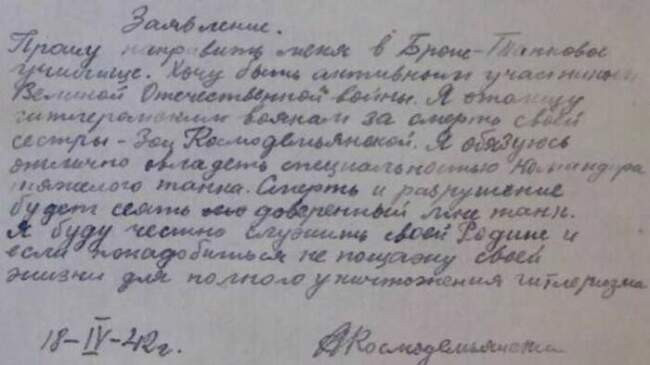 Заявление.
Прошу направить меня в Броне-Танковое
училище. Хочу быть активным участником
Великой Отечественной войны. Я отомщу
гитлеровским воякам за смерть своей
сестры - Зои Космодемьянской. Я обязуюсь
отлично овладеть специальностью командира
тяжелого танка. Смерть и разрушение
будет сеять доверенный мне танк.
Я буду честно служить своей Родине и
если понадобиться не пощажу своей
жизни для полного уничтожения гитлеризма
18-IV-42г. АКосмодемьянский